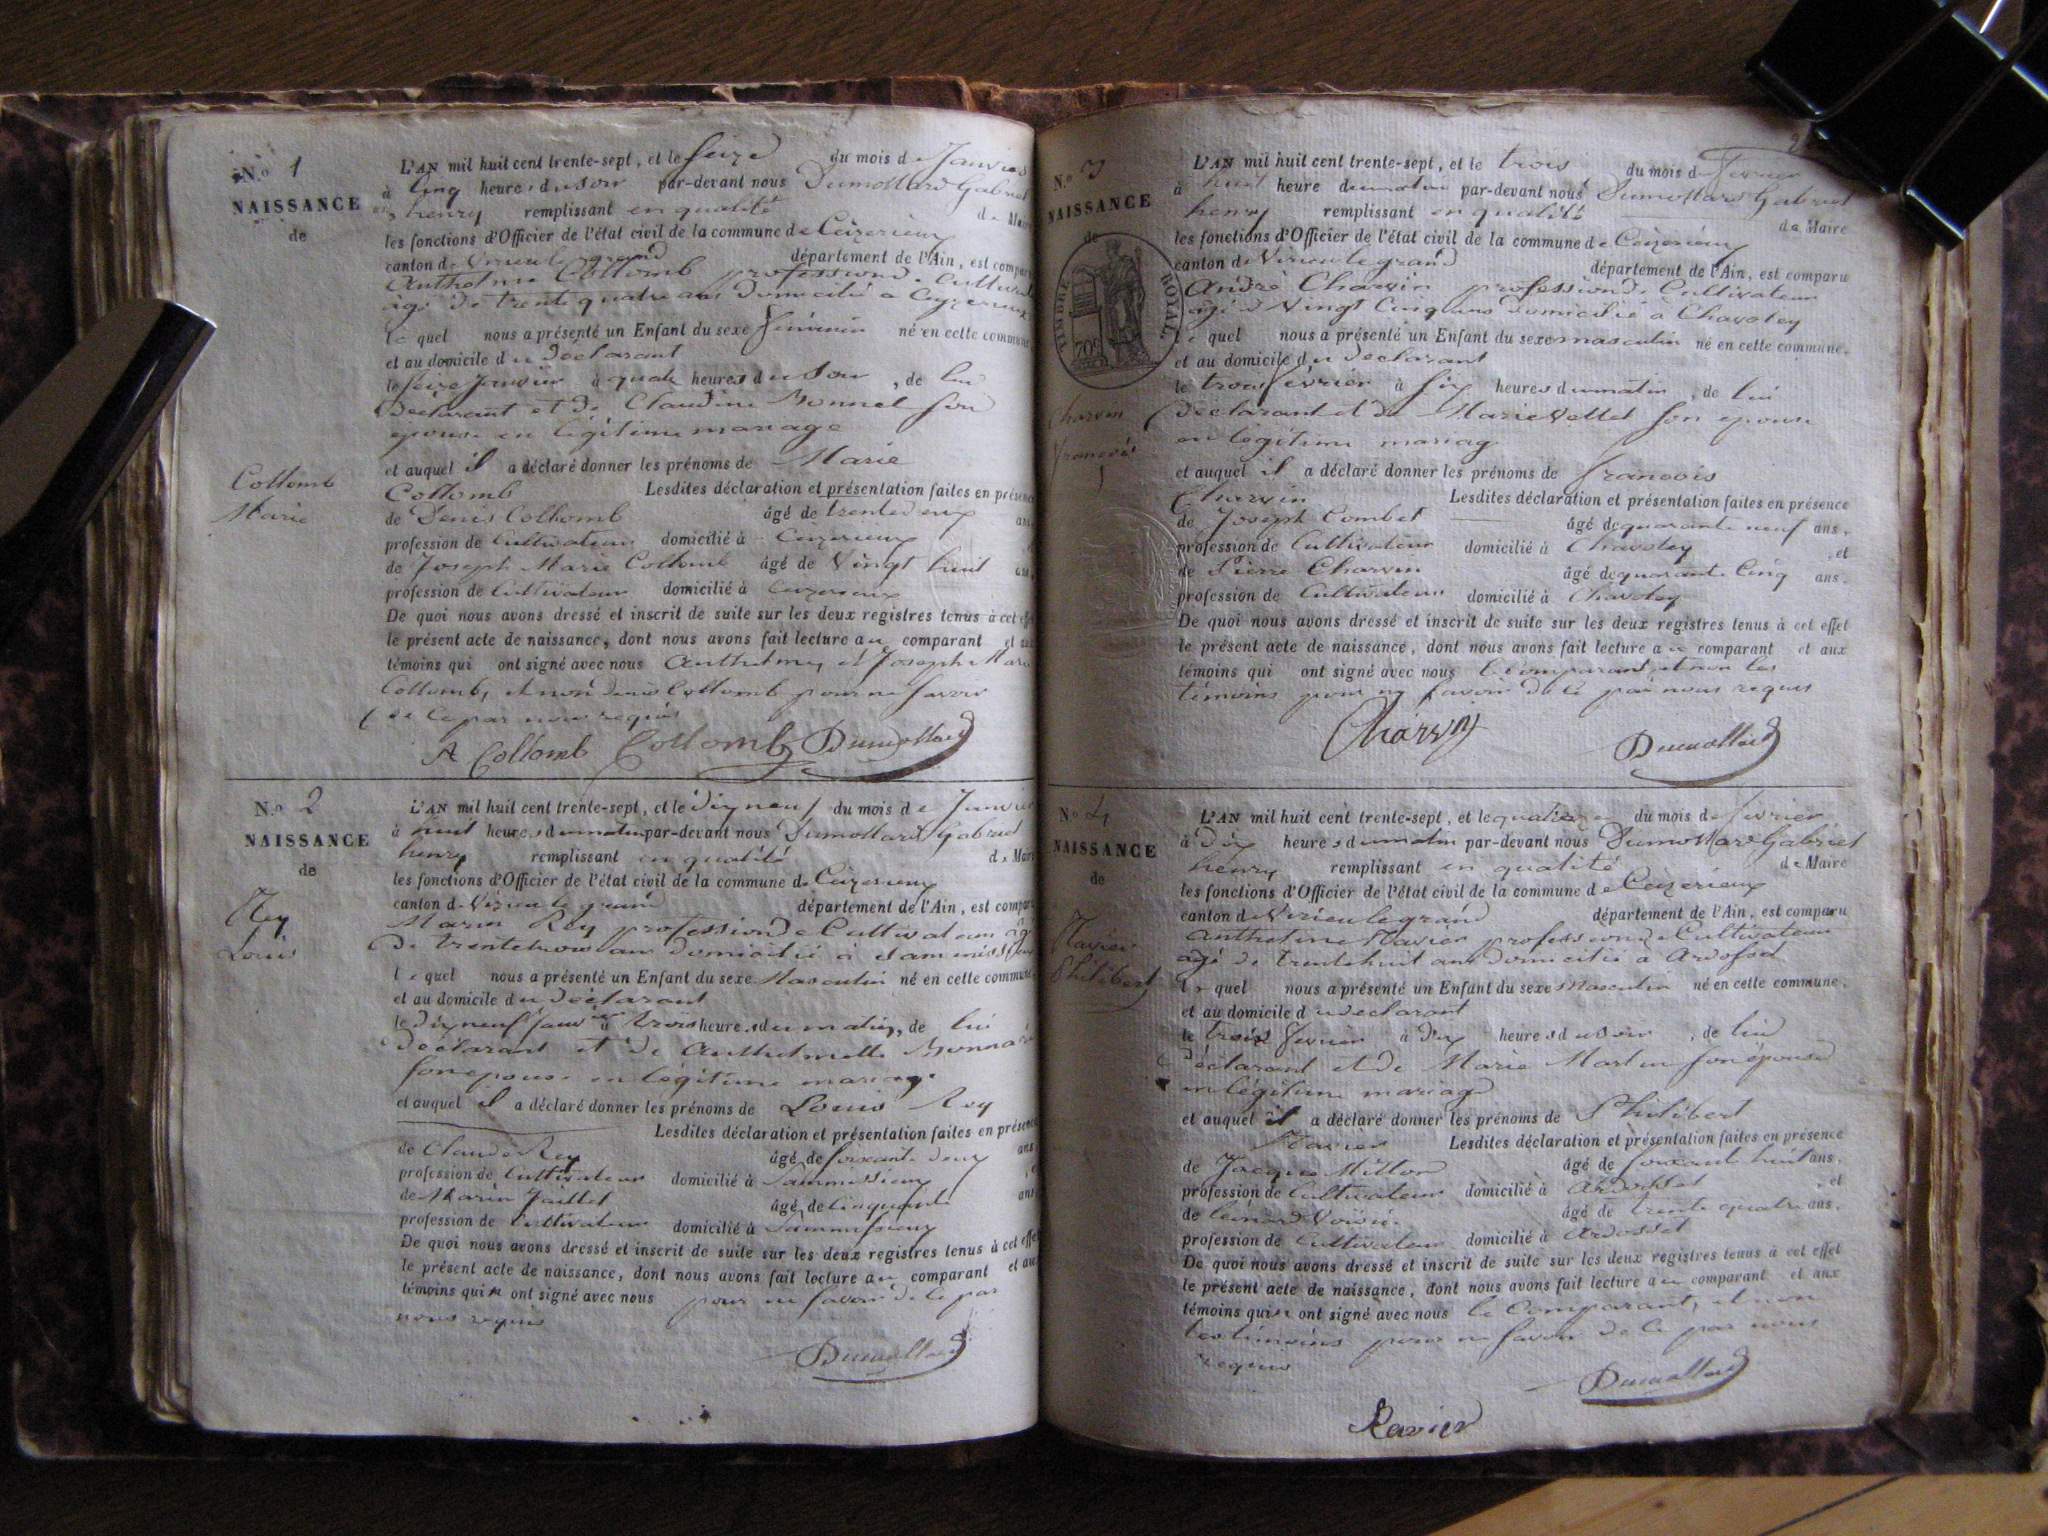 N.o 1
NAISSANCE
de
Collomb
Marie
L'AN mil huit cent trente-sept, et le seize du mois de Janvier
à cinq heures du soir par-devant nous Dumollard Gabriel
henry remplissant en qualité de Maire
les fonctions d'Officier de l'état civil de la commune de Ceizerieux
canton de Virieu le grand département de l'Ain, est comparu
Anthelme Collomb profession de Cultivateur
âgé de trente quatre ans domicilié a Ceyzerieux
le quel nous a présenté un Enfant du sexe féminin né en cette commune
et au domicile du déclarant
le seize Janvier à quatre heures du soir, de lui
déclarant et de Claudine Bonnet son
epouse en légitime mariage
et auquel il a déclaré donner les prénoms de Marie
Collomb Lesdites déclaration et présentation faites en présence
de Denis Collomb âgé de trente deux ans
profession de Cultivateur domicilié à Ceizerieux
de Joseph Marie Collomb âgé de Vingt huit ans
profession de Cultivateur domicilié à Ceizerieux
De quoi nous avons dressé et inscrit de suite sur les deux registres tenus à cet effet
le présent acte de naissance, dont nous avons fait lecture au comparant et aux
témoins qui ont signé avec nous Anthelme et Joseph Marie
Collomb, et non denis Collomb pour ne savoir
de ce par nous requis
A Collomb Collomb Dumollard
N.o 2
NAISSANCE
de
Rey
Louis
L'AN mil huit cent trente-sept, et le dix neuf du mois de Janvier
à huit heures du matin par-devant nous Dumollard Gabriel
henry remplissant en qualité de Maire
les fonctions d'Officier de l'état civil de la commune de Ceizerieux
canton de Virieu le grand département de l'Ain, est comparu
Marin Rey profession de Cultivateur âgé
de trente trois ans domicilié à
le quel nous a présenté un Enfant du sexe Masculin né en cette commune
et au domicile du déclarant
le dix neuf Janvier à trois heures du matin, de lui
déclarant et de Anthelmette
son epouse en légitime mariage
et auquel il a déclaré donner les prénoms de Louis Rey
Lesdites déclaration et présentation faites en présence
de Claude Rey âgé de soixante deux ans
profession de Cultivateur domicilié à Sammissieux
de Marin Jaillet âgé de Cinquante ans
profession de Cultivateur domicilié à Sammissieux
De quoi nous avons dressé et inscrit de suite sur les deux registres tenus à cet effet
le présent acte de naissance, dont nous avons fait lecture au comparant et aux
témoins qui n ont signé avec nous pour ne savoir de ce par
nous requis
Dumollard
2
N.o 3
NAISSANCE
de
TIMBRE ROYAL
70c
Charvin
francois
L'AN mil huit cent trente-sept, et le trois du mois de fevrier
à huit heure du matin par-devant nous Dumollard Gabriel
henry remplissant en qualité de Maire
les fonctions d'Officier de l'état civil de la commune de Ceizerieux
canton de Virieu le grand département de l'Ain, est comparu
André Charvin profession de Cultivateur
âgé de Vingt Cinq ans domicilié à Chavoley
le quel nous a présenté un Enfant du sexe masculin né en cette commune.
et au domicile du déclarant
le trois février à six heures du matin, de lui
déclarant et de Marie Vettet son epouse
en légitime mariage
et auquel il a déclaré donner les prénoms de francois
Charvin Lesdites déclaration et présentation faites en présence
de Joseph Combet âgé de quarante neuf ans,
profession de Cultivateur domicilié à Chavoley, et
de Pierre Charvin âgé de quarante Cinq ans.
profession de Cultivateur domicilié à Chavoley
De quoi nous avons dressé et inscrit de suite sur les deux registres tenus à cet effet
le présent acte de naissance, dont nous avons fait lecture au comparant et aux
témoins qui ont signé avec nous le comparant, et non les
témoins pour ne savoir de ce par nous requis
Charvin Dumollard
N.o 4
NAISSANCE
de
Ravier
Philibert
L'AN mil huit cent trente-sept, et le quatre du mois de février
à dix heures du matin par-devant nous Dumollard Gabriel
henry remplissant en qualité de Maire
les fonctions d'Officier de l'état civil de la commune de Ceizerieux
canton de Virieu le grand département de l'Ain, est comparu
Anthelme Ravier profession de Cultivateur
âgé de trente huit ans domicilié a Ardosset
le quel nous a présenté un Enfant du sexe Masculin né en cette commune.
et au domicile du declarant
le trois fevrier à dix heures du soir, de lui
déclarant et de Marie Martin son épouse
en légitime mariage
et auquel il a déclaré donner les prénoms de Philibert
Ravier Lesdites déclaration et présentation faites en présence
de Jacques Millon âgé de soixante huit ans.
profession de Cultivateur domicilié à Ardosset, et
de âgé de trente quatre ans.
profession de Cultivateur domicilié à Ardosset
De quoi nous avons dressé et inscrit de suite sur les deux registres tenus à cet effet
le présent acte de naissance, dont nous avons fait lecture au comparant et aux
témoins qui ont signé avec nous le Comparant, et non
les témoins pour ne savoir de ce par nous
requis
Dumollard
Ravier